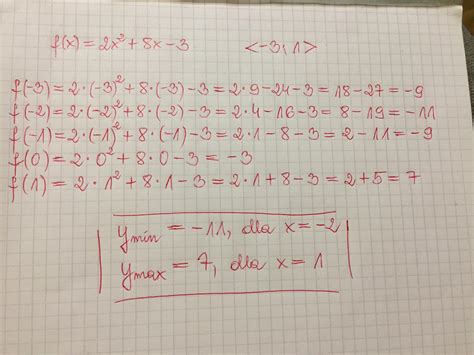 f(x) = 2x² + 8x - 3 <-3; 1>
f(-3) = 2·(-3)² + 8·(-3) - 3 = 2·9 - 24 - 3 = 18 - 27 = -9
f(-2) = 2·(-2)² + 8·(-2) - 3 = 2·4 - 16 - 3 = 8 - 19 = -11
f(-1) = 2·(-1)² + 8·(-1) - 3 = 2·1 - 8 - 3 = 2 - 11 = -9
f(0) = 2·0² + 8·0 - 3 = -3
f(1) = 2·1² + 8·1 - 3 = 2·1 + 8 - 3 = 2 + 5 = 7
ymin = -11, dla x = -2
ymax = 7, dla x = 1